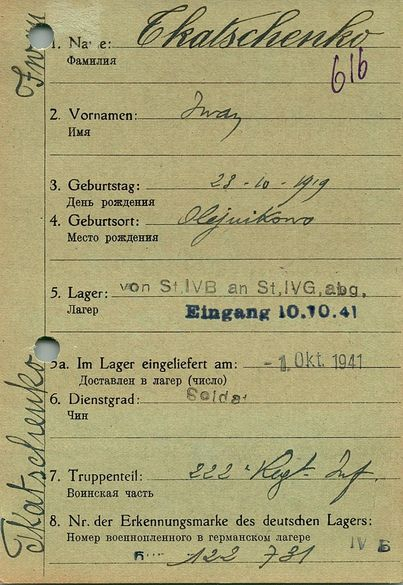 1. Name: Tkatschenko
Фамилия
616
2. Vornamen: Iwan
Имя
3. Geburtstag: 28-10-1919
День рождения
4. Geburtsort: Olejnikowo
Место рождения
5. Lager: von St,IVB an St,IVG,abg.
Лагер
Eingang 10.10.41
5a. Im Lager eingeliefert am: -1. Okt. 1941
Доставлен в лагер (число)
6. Dienstgrad: Soldat
Чин
7. Truppenteil: 222 Regt. Inf.
Воинская часть
8. Nr. der Erkennungsmarke des deutschen Lagers:
Номер военнопленного в германском лагере
IV B
122 731
Tkatschenko Iwan